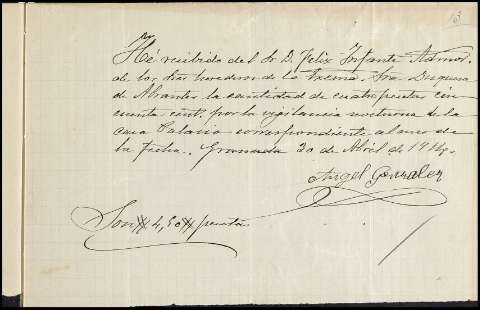 13
He recibido del Sr. D. Felix Infante Admor.
de los Sres herederos de la Excma. Sra Duquesa
de Abrantes la cantidad de cuatro pesetas cin
cuenta cent. por la vigilancia nocturna de la
casa Palacio correspondiente al mes de
la fecha. Granada 30 de Abril de 1914.
Angel Gonzalez
Son # 4,50 # pesetas